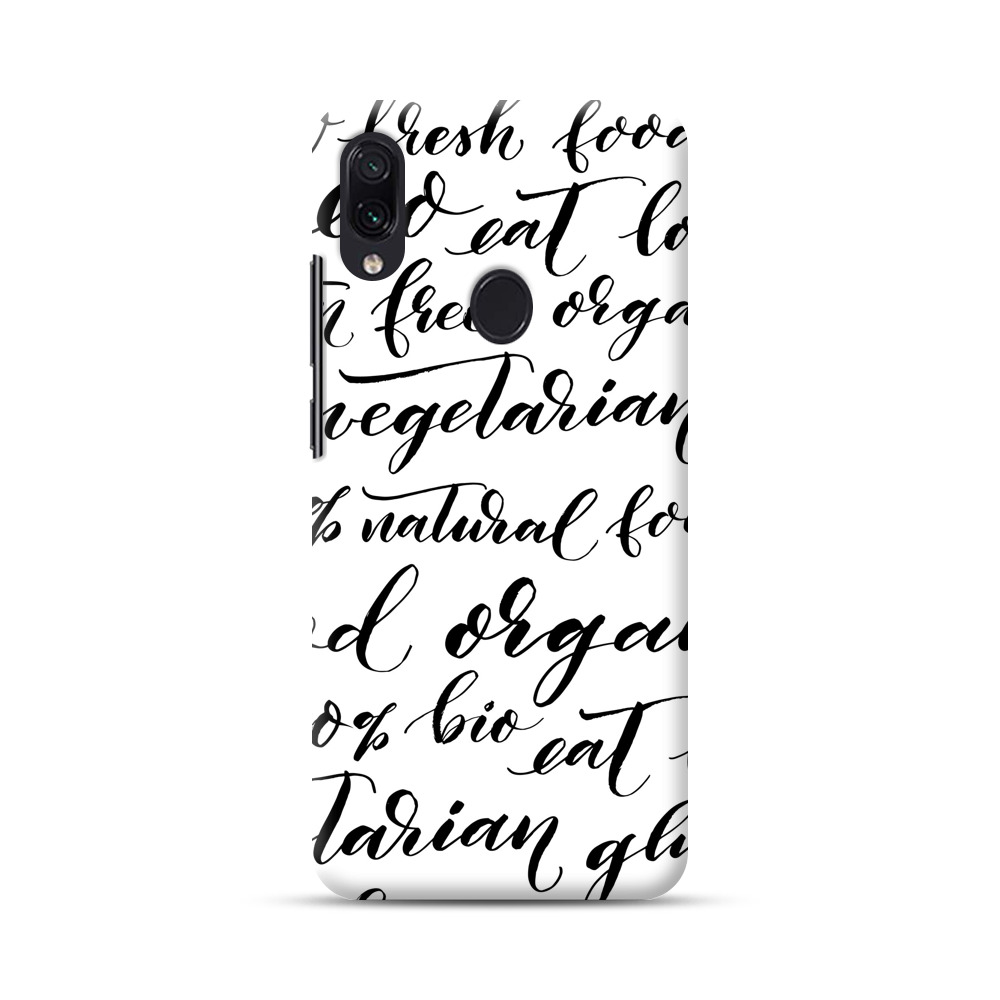 fresh food
eat lo
n free orga
vegetarian
% natural foo
d organ
0% bio
eat
tarian glu